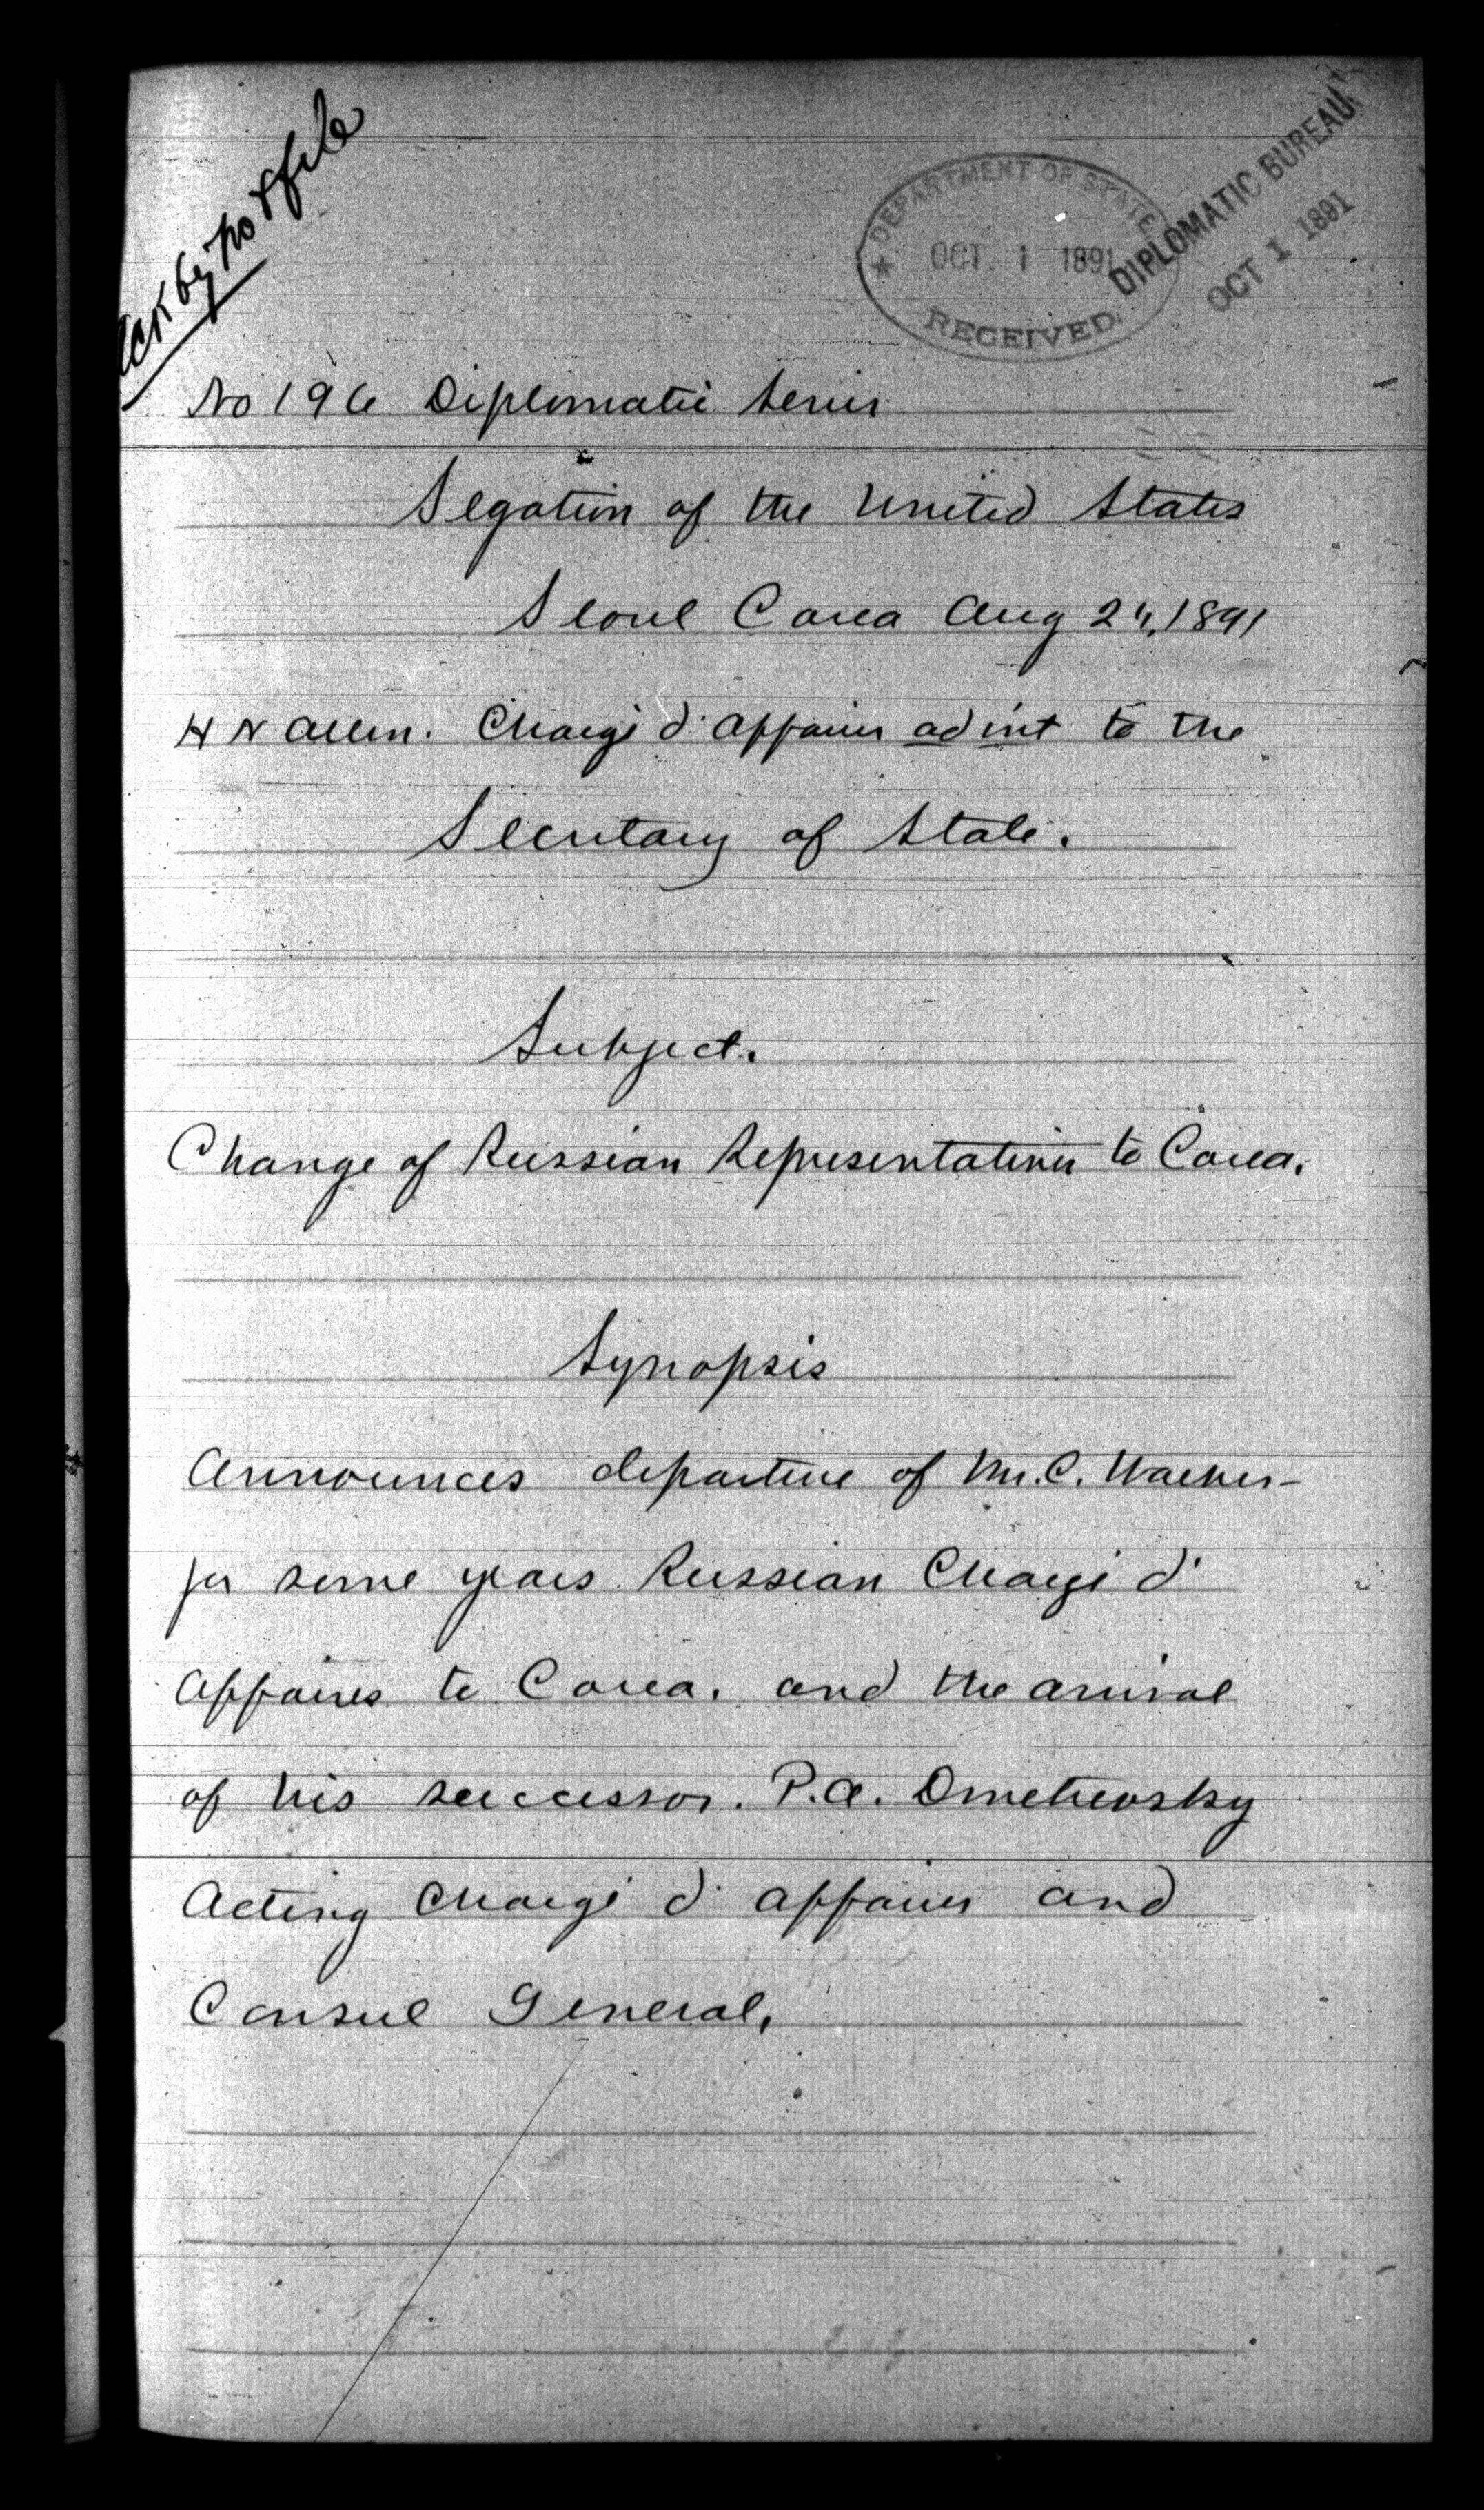 Ack by no & file
DEPARTMENT OF STATE
OCT 1 1891
RECEIVED
DIPLOMATIC BUREAU
OCT 1 1891
No 196 Diplomatic Series
Legation of the United States
Seoul Corea Aug 1891
H N Allen. Chargé d' Affaires ad int to the
Secretary of State.
Subject.
Change of Russian Representation to Corea.
Synopsis
Announces departure of Mr. C. Waeber -
for some years Russian Chargé d'
Affaires to Corea. and the arrival
of his successor. P.A. Dmetrevsky
Acting Chargé d' Affaires and
Consul General,